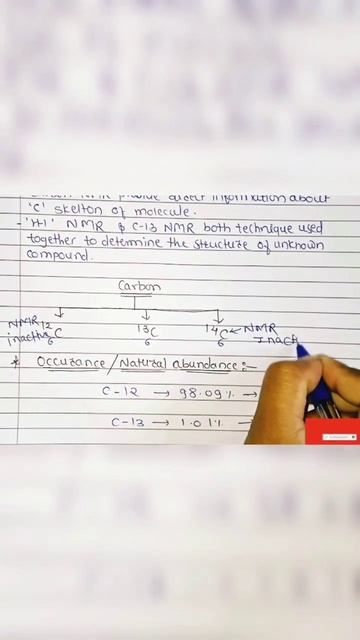 Carbon NMR provide direct information about
'C' skelton of molecule.
- 'H1' NMR & C-13 NMR both technique used
together to determine the structure of unknown
compound.
Carbon
NMR inactive 12 6 C 13 6 C 14 6 C ← NMR Inacti
* Occurance / Natural abundance:-
C-12 → 98.09% →
C-13 → 1.01% →